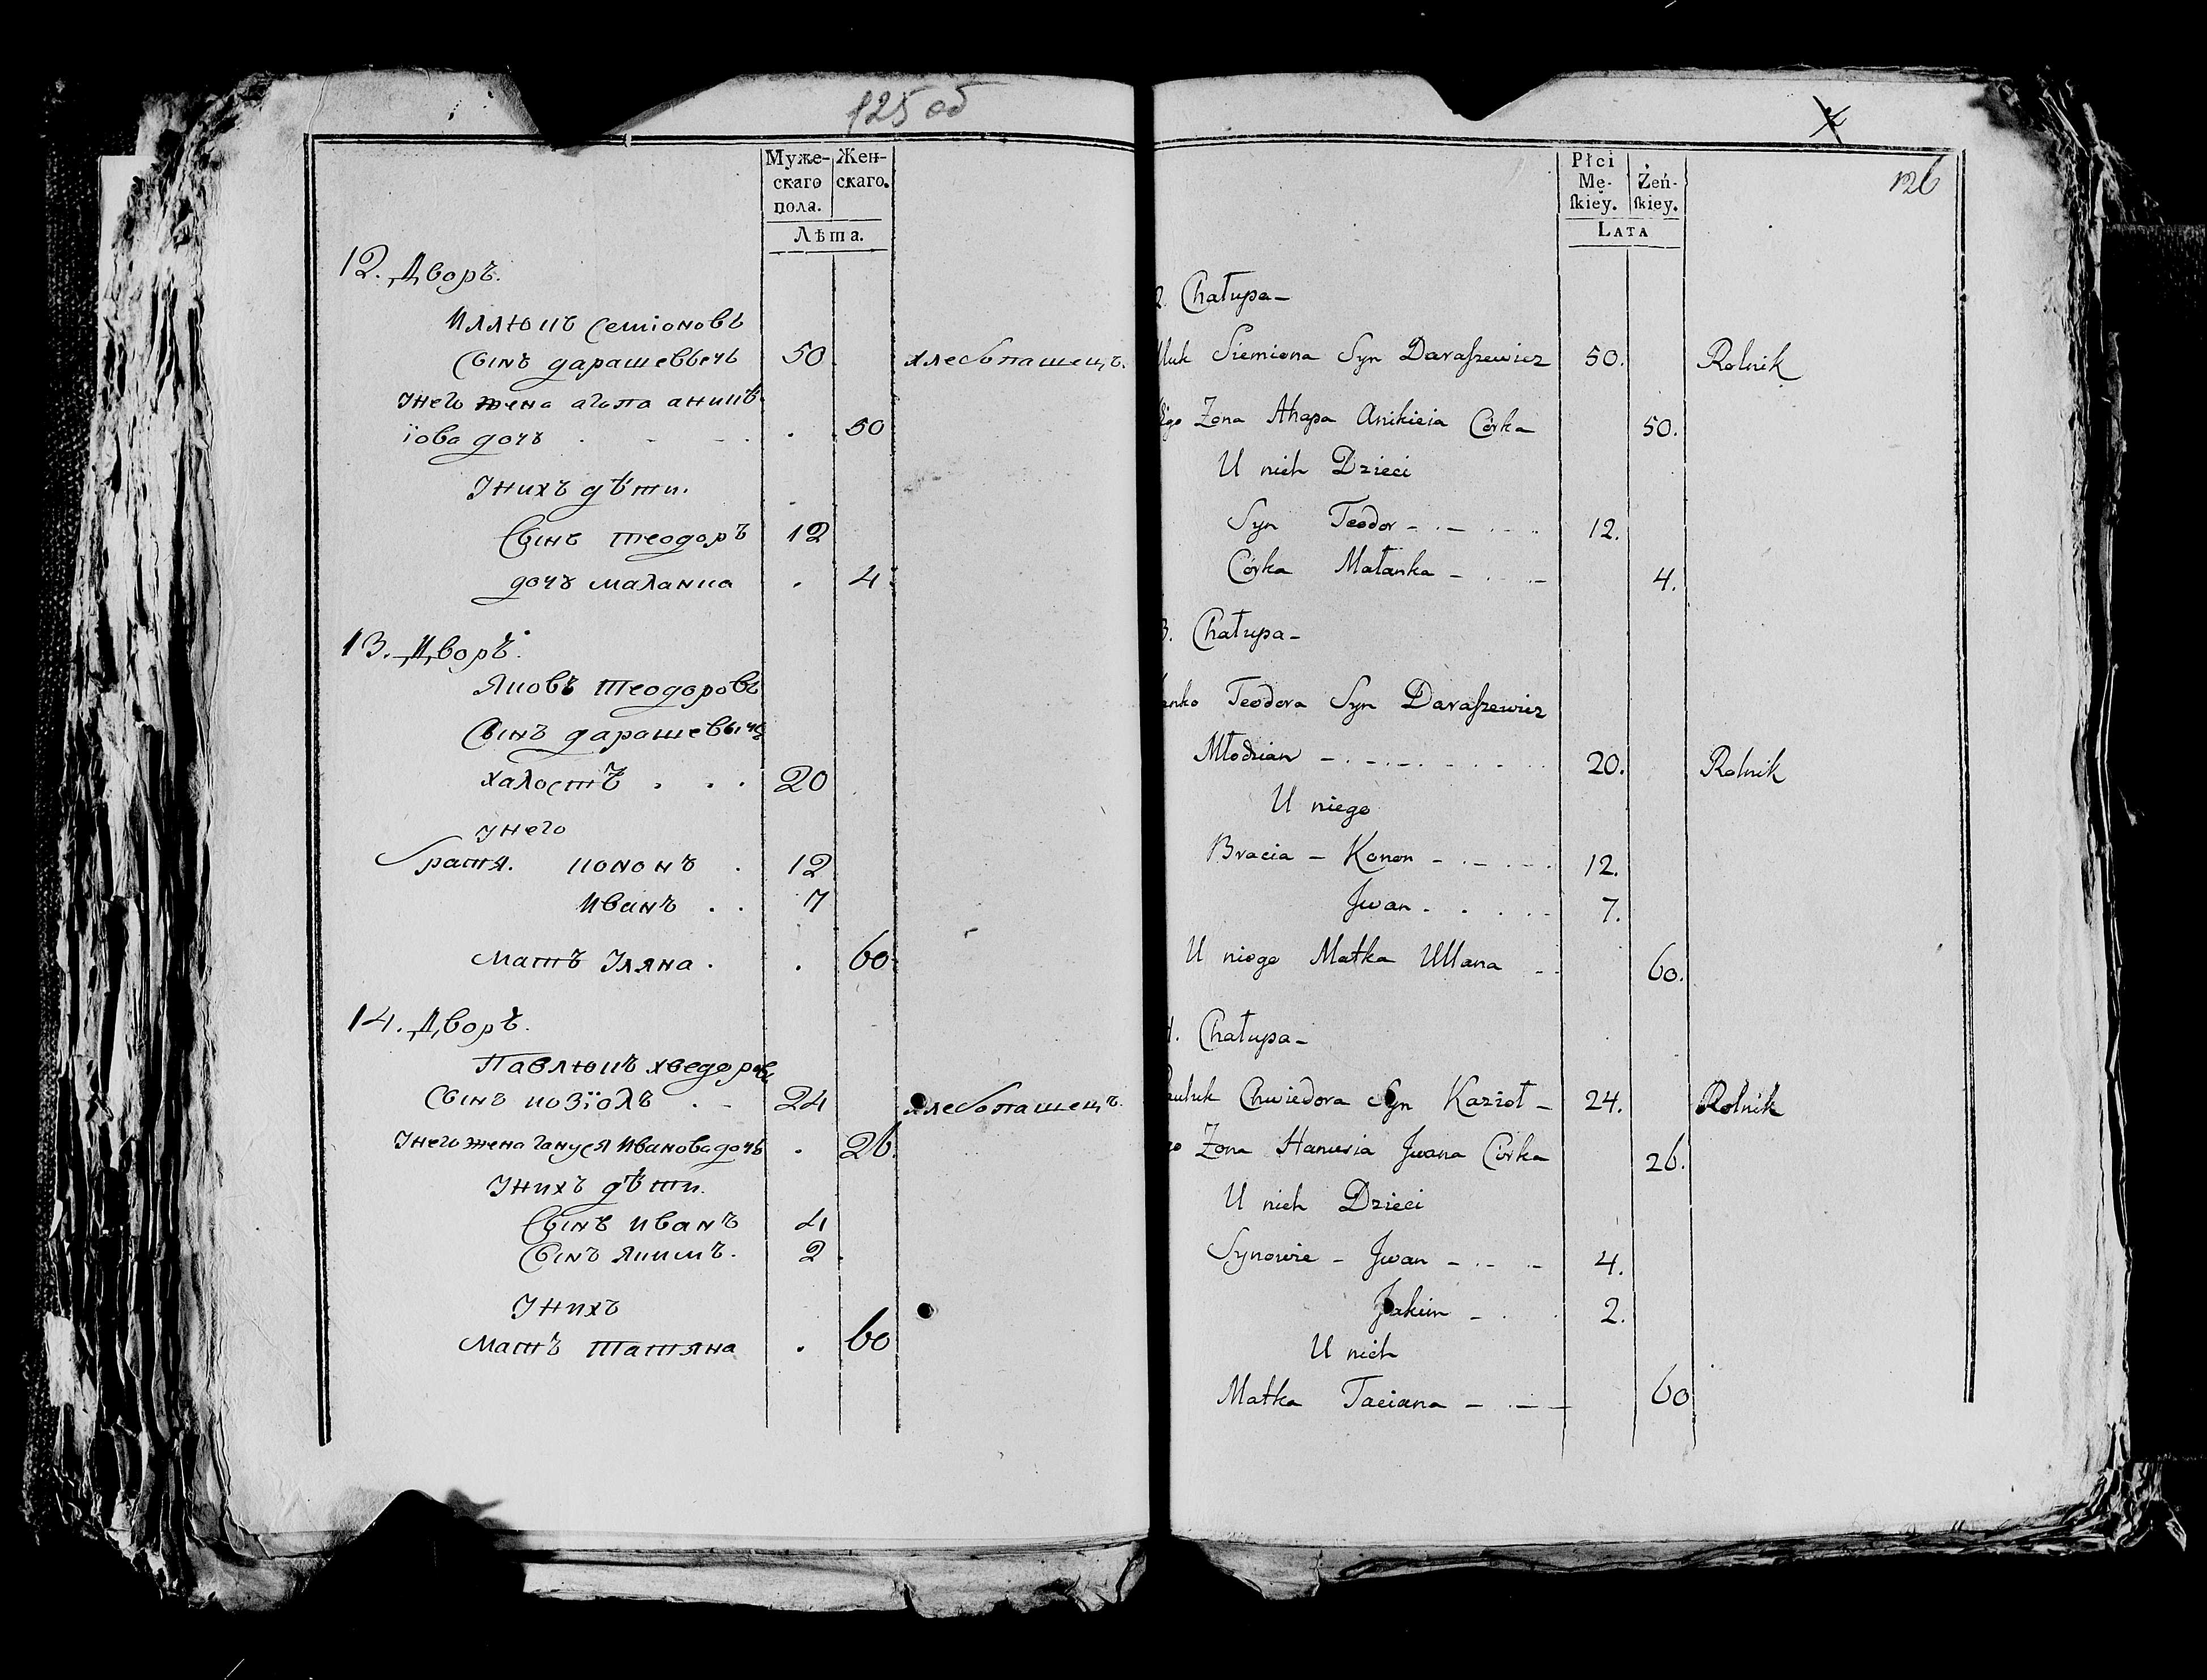 125 об
Муже- Жен-
скаго скаго.
пола.
Лѣта.
12. Дворъ.
Иллюкъ семіоновъ
сынъ дарашевьечъ 50 хлебопашецъ.
Унего жена агапа аникѣ
іова дочъ . - - . . 50
Унихъ дѣти.
Сынъ теодоръ 12
дочъ маланка . 4
13. Дворъ.
Яковъ теодоровъ
Сынъ дарашевычъ
халостъ . . . 20
унего
братя. кононъ . 12
Иванъ . . 7
матъ Уляна . . 60
14. Дворъ.
Павлюкъ хведоровъ
сынъ козіолъ . - 24 хлебопашецъ.
Унего жена гануся Иванова дочъ . 26
Унихъ дѣти.
Сынъ иванъ 4
Сынъ якимъ. 2
Унихъ
матъ татяна . 60
126
Płci
Mę- Żeń-
skiéy. skiey.
LATA
2. Chałupa -
lluk Siemiona Syn Daraszewicz 50. Rolnik
Ego Zona Ahapa Anikieia Córka 50.
U nich Dzieci
Syn Teodor - . - . . . 12.
Córka Małanka - . . - 4.
3. Chałupa -
anko Teodora Syn Daraszewicz
Młodzian - . - . - . - . . . 20. Rolnik
U niego
Bracia - Konon - . - . . . 12.
Jwan . . . . - 7.
U niego Matka Ullana - - 60.
4. Chałupa -
auluk Chwiedora Syn Kazioł - 24. Rolnik
go Zona Hanusia Jwana Córka 26.
U nich Dzieci
Synowie - Jwan - . - . - 4.
Jakim - . . 2.
U nich
Matka Taciana - . - - 60